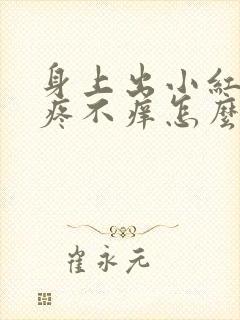 身上出小紅
疼不痒怎麼
崔永元